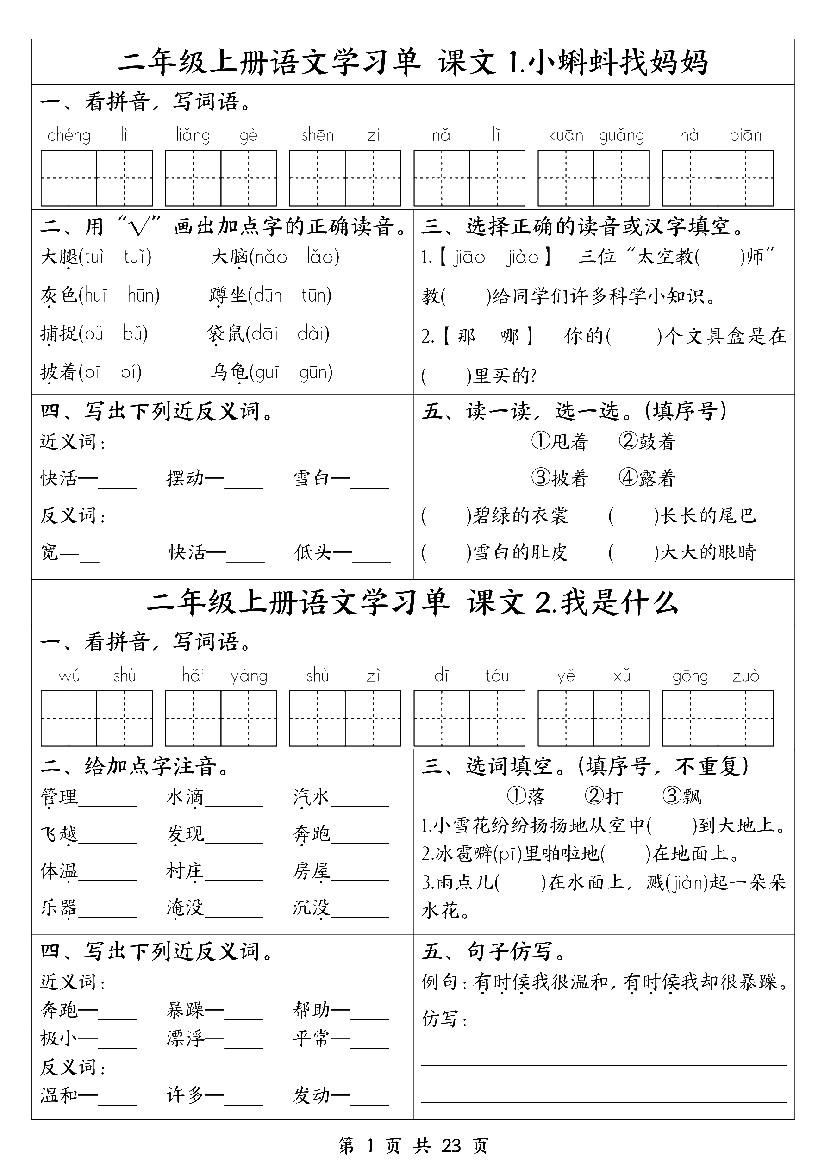 二年级上册语文学习单 课文 1.小蝌蚪找妈妈
一、看拼音，写词语。
chéng lì liǎng gè shēn zi nǎ lǐ kuān guǎng hà piān
二、用“√”画出加点字的正确读音。
大腿(tuì tuǐ) 大脑(nǎo lǎo)
灰色(huī hūn) 蹲坐(dūn tūn)
捕捉(pǔ bǔ) 袋鼠(dāi dài)
披着(pī pí) 乌龟(guī gūn)
三、选择正确的读音或汉字填空。
1.【jiāo jiào】 三位“太空教( )师”
教( )给同学们许多科学小知识。
2.【那 哪】 你的( )个文具盒是在
( )里买的?
四、写出下列近反义词。
近义词：
快活—____ 摆动—____ 雪白—____
反义词：
宽—__ 快活—____ 低头—____
五、读一读，选一选。(填序号)
①甩着 ②鼓着
③披着 ④露着
( )碧绿的衣裳 ( )长长的尾巴
( )雪白的肚皮 ( )大大的眼睛
二年级上册语文学习单 课文 2.我是什么
一、看拼音，写词语。
wú shù hǎi yáng shù zì dī tóu yě xǔ gōng zuò
二、给加点字注音。
管理______ 水滴______ 汽水______
飞越______ 发现______ 奔跑______
体温______ 村庄______ 房屋______
乐器______ 淹没______ 沉没______
三、选词填空。(填序号，不重复)
①落 ②打 ③飘
1.小雪花纷纷扬扬地从空中( )到大地上。
2.冰雹噼(pī)里啪啦地( )在地面上。
3.雨点儿( )在水面上，溅(jiàn)起一朵朵
水花。
四、写出下列近反义词。
近义词：
奔跑—____ 暴躁—____ 帮助—____
极小—____ 漂浮—____ 平常—____
反义词：
温和—____ 许多—____ 发动—____
五、句子仿写。
例句：有时候我很温和，有时候我却很暴躁。
仿写：
第 1 页 共 23 页